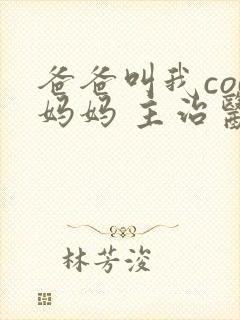 爸爸叫我co
妈妈 主治
林芳浚